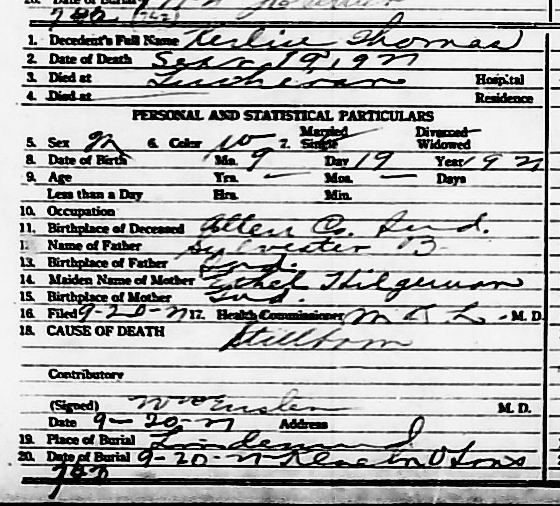 20. Date of Burial
782 (762)
1. Decedent's Full Name Kerlin Thomas
2. Date of Death Sept 19, 1927
3. Died at Lutheran Hospital
4. Died at Residence
PERSONAL AND STATISTICAL PARTICULARS
5. Sex M 6. Color W 7. Married Single Divorced Widowed
8. Date of Birth Mo. 9 Day 19 Year 1927
9. Age Yrs. — Mos. — Days
Less than a Day Hrs. Min.
10. Occupation
11. Birthplace of Deceased Allen Co. Ind.
1 Name of Father Sylvester B
13. Birthplace of Father Ind.
14. Maiden Name of Mother Ethel Hilgeman
15. Birthplace of Mother Ind.
16. Filed 9-20-27 17. Health Commissioner M. D.
18. CAUSE OF DEATH Stillborn
Contributory
(Signed) M. D.
Date 9-20-27 Address
19. Place of Burial Lindenwood
20. Date of Burial 9-20-27 Klaehn & Sons